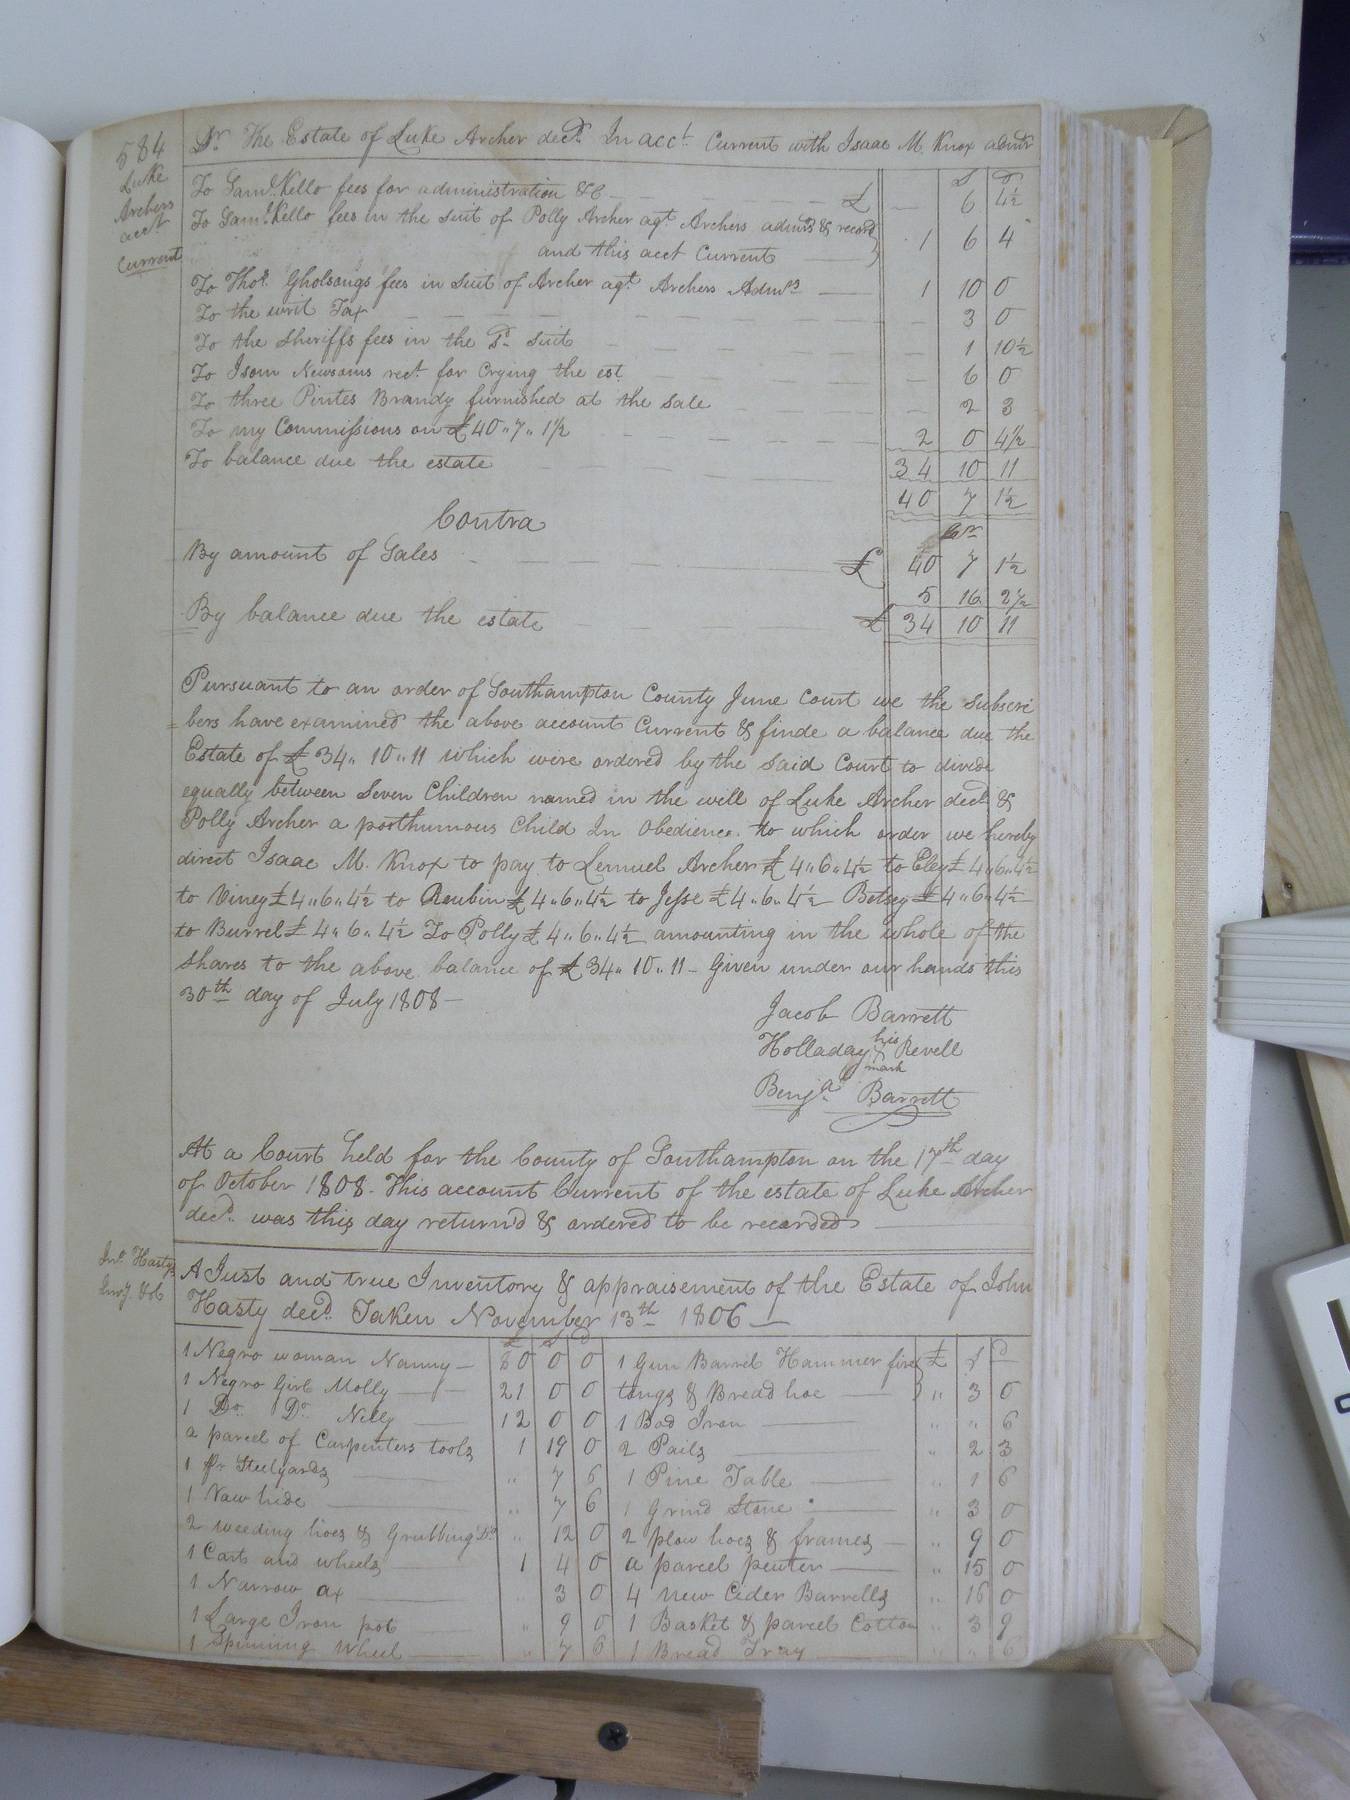 584
Luke
Archers
acct
Current
Dr The Estate of Luke Archer decd. In acct. Current with Isaac M. Knox admr
To Saml. Kello fees for administration &c £ 6 4½
To Saml. Kello fees in the suit of Polly Archer agt. Archers admrs & record
and this acct Current 1 6 4
To Thos. Gholsongs fees in suit of Archer agt. Archers Admrs 1 10 0
To the writ Tax 3 0
To the Sheriffs fees in the Sd. Suit 1 10½
To Isom Newsoms rect. for Crying the est. 6 0
To three Pintes Brandy furnished at the sale 2 3
To my Commissions on £40"7"1½ 2 0 4½
To balance due the estate 34 10 11
40 7 1½
Contra Cr
By amount of Sales £ 40 7 1½
5 16 2½
By balance due the estate £ 34 10 11
Pursuant to an order of Southampton County June Court we the subscri
=bers have examined the above account Current & finde a balance due the
Estate of £34"10"11 which were ordered by the said Court to divide
equally between Seven Children named in the will of Luke Archer decd. &
Polly Archer a posthumous Child In Obedience to which order we hereby
direct Isaac M. Knox to pay to Lemuel Archer £4"6"4½ to Eley £4"6"4½
to Viney £4"6"4½ to Reubin £4"6"4½ to Jesse £4"6"4½ Betsey £4"6"4½
to Burrel £4"6"4½ To Polly £4"6"4½ amounting in the whole of the
shares to the above balance of £34"10"11 - Given under our hands this
30th day of July 1808 -
Jacob Barrett
his
Holladay X Revell
mark
Benja. Barrett
At a Court held for the County of Southampton on the 17th day
of October 1808. This account Current of the estate of Luke Archer
decd. was this day return'd & ordered to be recorded
Jno. Hastys
A Just and true Inventory & appraisement of the Estate of John
Hasty decd. Taken November 13th 1806
£ S D £ S D
1 Negro woman Nanny 0 0 1 Gun Barrel Hammer fire
1 Negro Girl Molly 21 0 0 tongs & Bread hoe " 3 0
1 Do. Do. Nelly 12 0 0 1 Box Iron " " 6
a parcel of Carpenters tools 1 19 0 2 Pails " 2 3
1 pr Steelyards " 7 6 1 Pine Table " 1 6
1 Raw hide " 7 6 1 Grind Stone " 3 0
2 weeding hoes & Grubbing Do. " 12 0 2 plow hoes & frames " 9 0
1 Cart and wheels 1 4 0 a parcel pewter " 15 0
1 Narrow ax " 3 0 4 new Cider Barrells " 16 0
1 Large Iron pot " 9 0 1 Basket & parcel Cotton " 3 9
1 Spinning Wheel " 7 6 1 Bread Tray " " 6